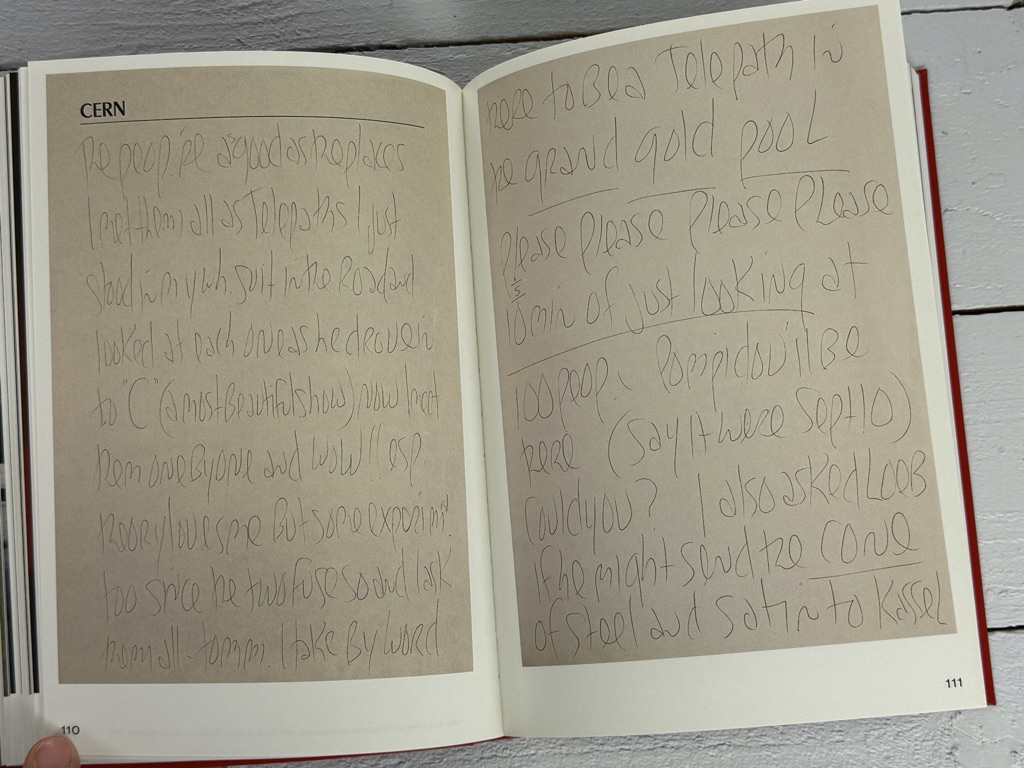 CERN
he peop. are as good as the places
I met them all as Telepaths I just
stood in my wh suit in the Road and
looked at each one as he drove in
to "C" (a most Beautiful show) Now I meet
them one By one and WoW!! esp.
theory loves me But some experim!
too since the two fuse so and I ask
them all. tomm. I take By word
here to Be a Telepath in
he grand gold pool
Please Please Please PLease
15
10 min of just looking at
100 peop. Pompidou ill Be
here (Say it were Sept 10)
Could you? I also asked LOEB
if he might send the CONE
of steel and satin to Kassel
110
111